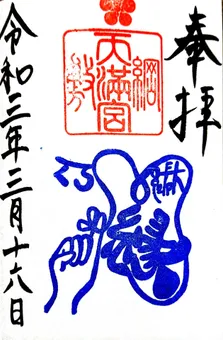 奉拝
綱敷
天満宮
令和三年三月十六日